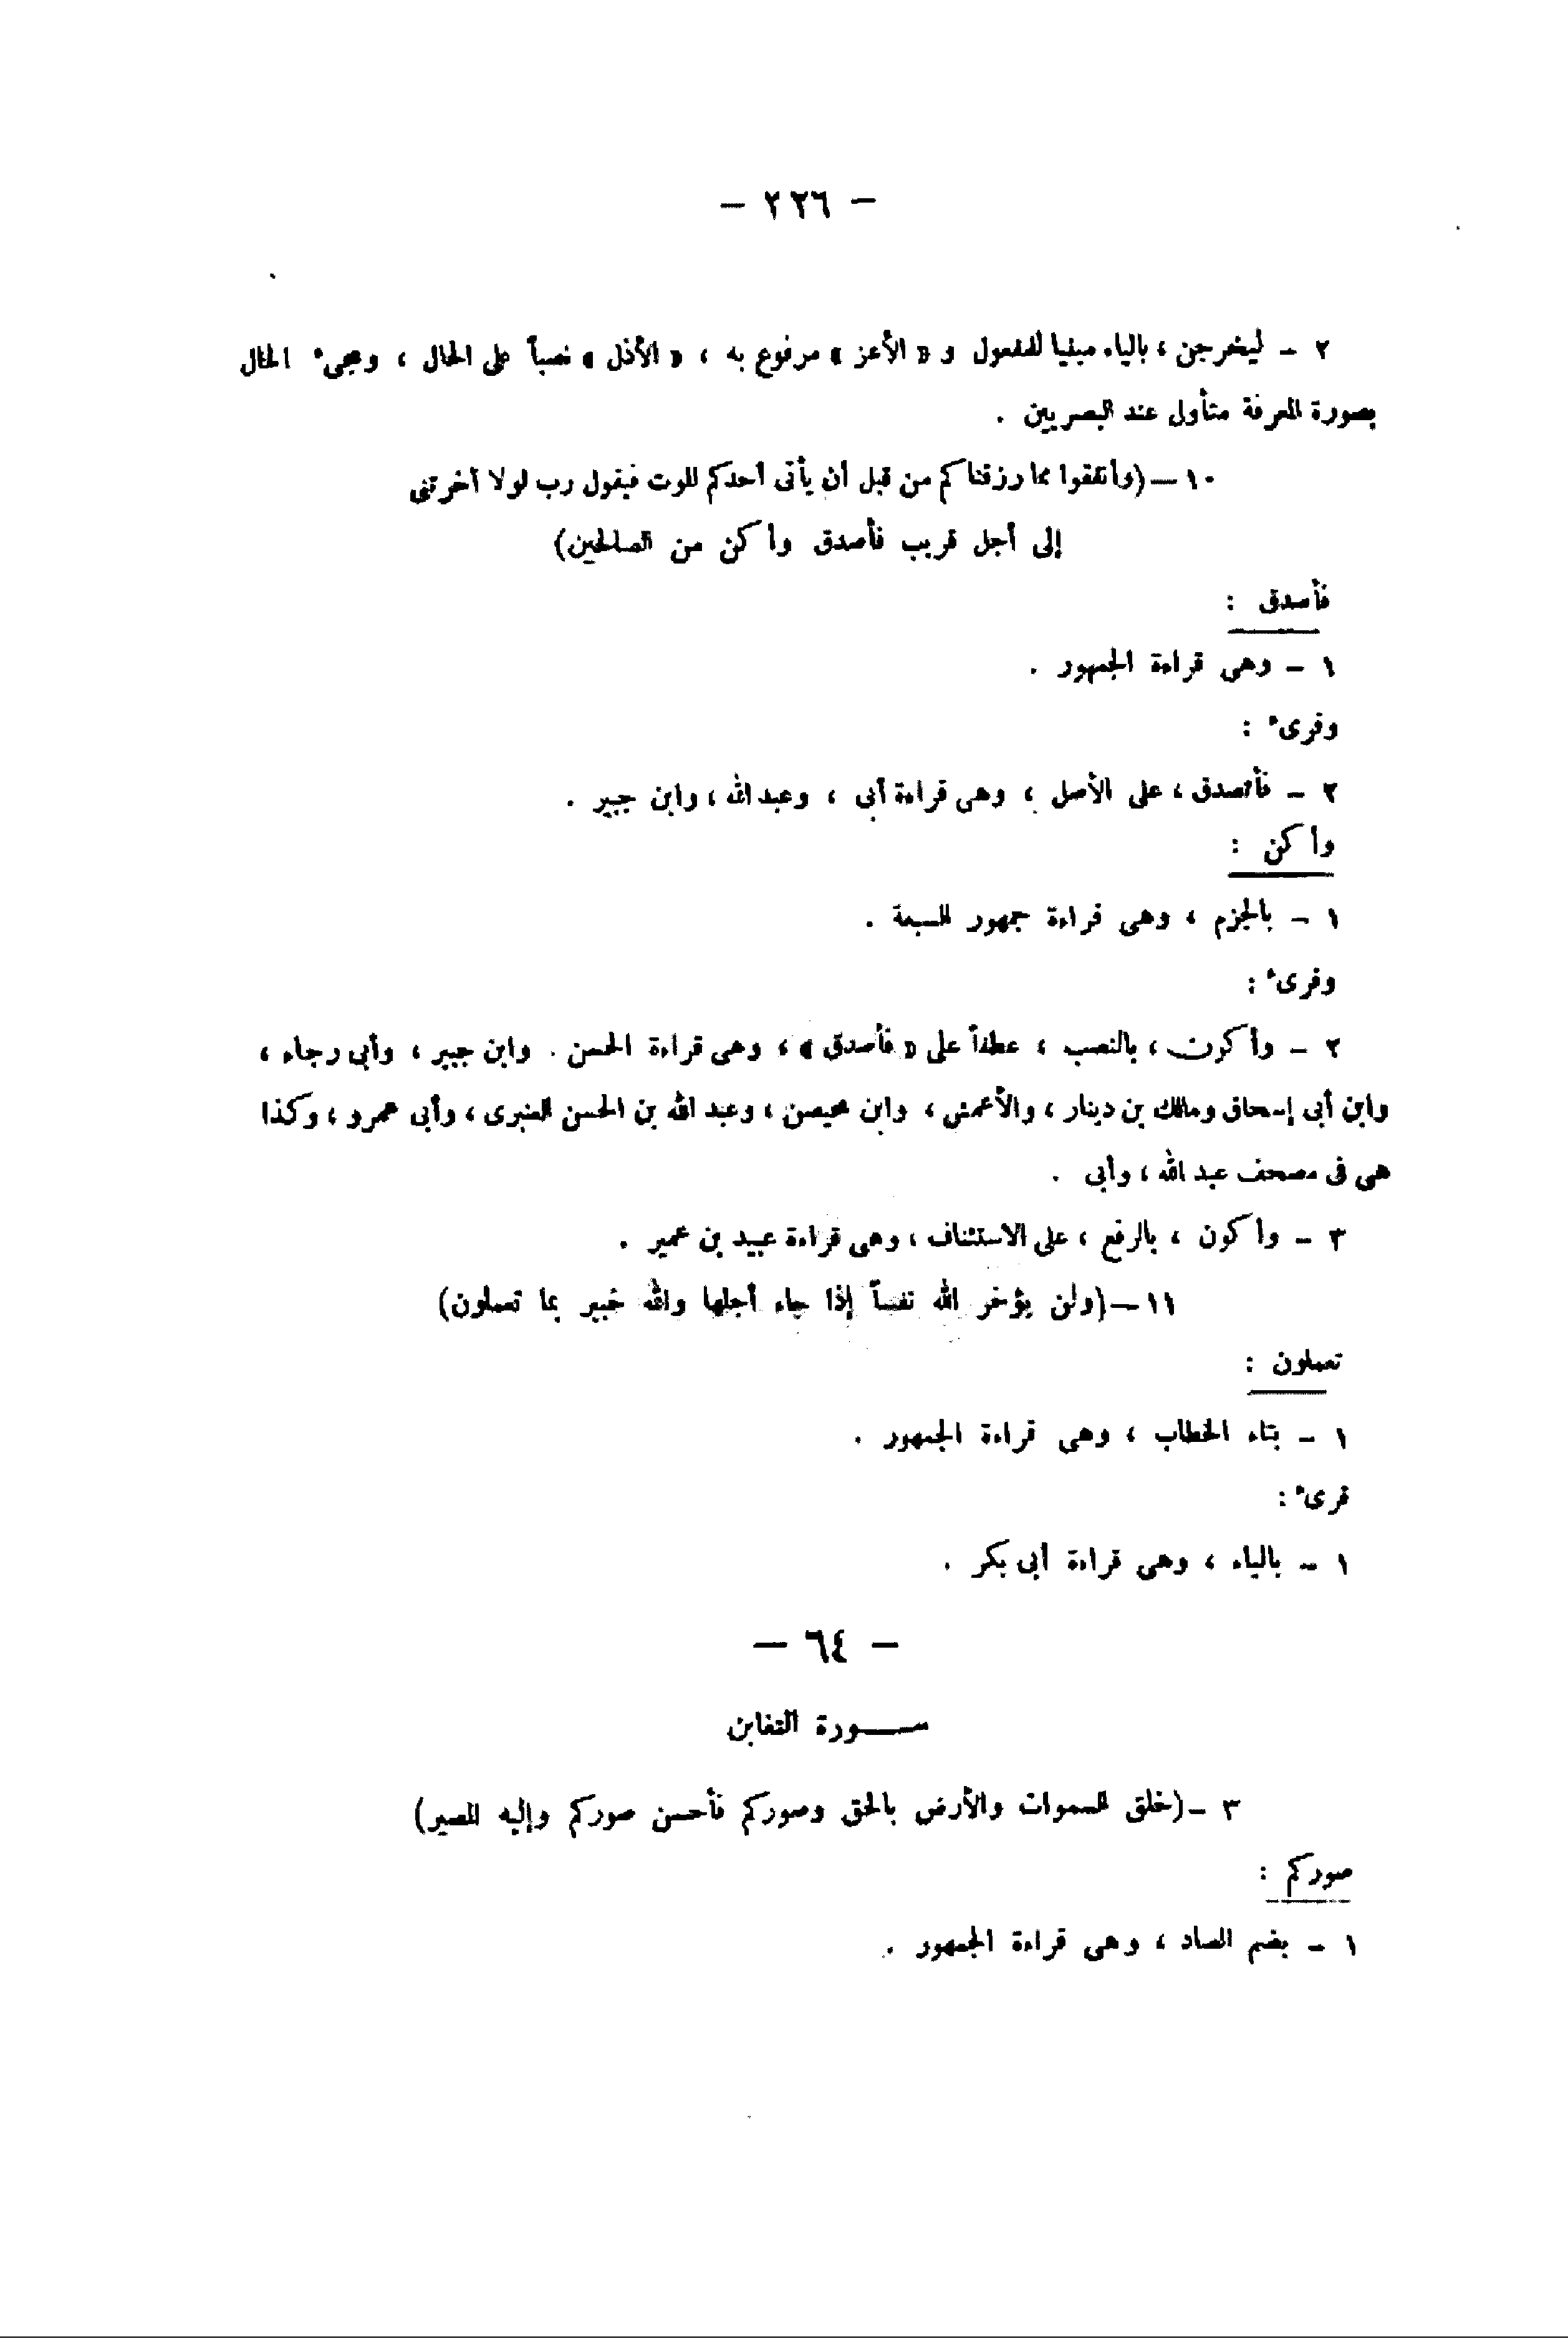 — ٢٢٦ —
٢ – ليخرجن ، بالياء مبنيا للمفعول و « الأعز » مرفوع به ، « الأذل » نصباً على الحال ، ومجىء الحال
بصورة المعرفة متأول عند البصريين .
١٠ — (وأنفقوا مما رزقناكم من قبل أن يأتى أحدكم الموت فيقول رب لولا أخرتنى
إلى أجل قريب فأصدق وأكن من الصالحين)
فأصدق :
١ – وهى قراءة الجمهور .
وقرىء :
٢ – فأتصدق ، على الأصل ، وهى قراءة أبى ، وعبد الله ، وابن جبير .
وأكن :
١ – بالجزم ، وهى قراءة جمهور السبعة .
وقرىء :
٢ – وأكون ، بالنصب ، عطفاً على « فأصدق » ، وهى قراءة الحسن . وابن جبير ، وأبى رجاء ،
وابن أبى إسحاق ومالك بن دينار ، والأعمش ، وابن محيصن ، وعبد الله بن الحسن العنبرى ، وأبى عمرو ، وكذا
هى فى مصحف عبد الله ، وأبى .
٣ – وأكون ، بالرفع ، على الاستئناف ، وهى قراءة عبيد بن عمير .
١١ — (ولن يؤخر الله نفساً إذا جاء أجلها والله خبير بما تعملون)
تعملون :
١ – بتاء الخطاب ، وهى قراءة الجمهور .
قرىء :
١ – بالياء ، وهى قراءة أبى بكر .
— ٦٤ —
ســـورة التغابن
٣ – (خلق السموات والأرض بالحق وصوركم فأحسن صوركم وإليه المصير)
صوركم :
١ – بضم الصاد ، وهى قراءة الجمهور .